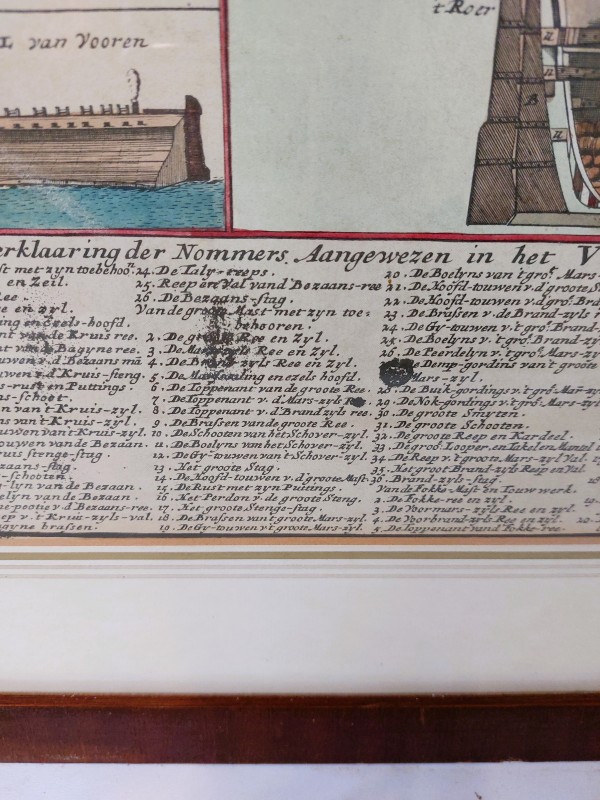 t Roer
L van Vooren
B
erklaaring der Nommers, Aangewezen in het V
st met zyn toebehoo:
en Zeil.
Ree.
ee en zyl.
ing en Ezels-hoofd.
nt van de Kruis ree.
t van de Bagyne ree.
uwen v.d Bezaans
uwen v.d Kruis-steng.
s-rust en Puttings.
ns-schoet.
n van t Kruis-zyl.
ns van t Kruis-zyl.
uwen van t Kruis-zyl.
ouwen van de Bezaan.
ruis stenge-stag.
zaans-stag.
-schooten.
s-lyn van de Bezaan.
elyn van de Bezaan.
v.d Bezaans-ree.
eep v. t Kruis-zyls-val.
agyne brassen.
24. De Taly-reeps.
25. Reep en Val van d' Bezaans-ree
26. De Bezaans-stag.
Van de groote Mast met zyn toe-
behooren.
2. De groote Ree en Zyl.
3. De Mars-zyls Ree en Zyl.
4. De Brand-zyls Ree en Zyl.
5. De en ezels hoofd.
6. De Toppenant van de groote Ree.
7. De Toppenant v. d. Mars-zyls Ree.
8. De Toppenant v. d' Brand zyls ree.
9. De Brassen van de groote Ree.
10. De Schooten van het Schover-zyl.
11. De Boelyns van het Schover-zyl.
12. De Gy-touwen van t Schover-zyl.
13. Het groote Stag.
14. De Hoofd-touwen v.d' groote Mast
15. De Rust met zyn Puttings.
16. Het Perdon v. de groote Steng.
17. Het groote Stenge-stag.
18. De Brassen van t groote Mars-zyl.
19. De Gy-touwen v. t groote Mars-zyl.
20. De Boelyns van t gro.t Mars-
21. De Hoofd-touwen v.d' groote S
22. De Hoofd-touwen v.d' gr. Br
23. De Brassen v. de Brand-zyls r
24. De Gy-touwen v. t gro.t Brand-
25. De Boelyns v. t gro.t Brand-zy
26. De Peerdelyn v. t gro.t Mars-z
De Demp-gordins van t groote
Mars-zyl.
28. De Buik-gordings v. t gro.t Mars-zyl
29. De Nok-gordings v. t gro.t Mars-zyl
30. De groote Smyten.
31. De groote Schooten.
32. De groote Reep en Kardeel.
33. De groo. Topper, en Takel en Mantel
34. De Reep v. t groote Mars-zyl Val z
35. Het groot Brand-zyls Reep en Val.
36. Brand-zyls-stag.
Van de Fokke-Mast en Touw werk.
2. De Fokke-ree en zyl.
3. De Voormars-zyls Ree en zyl.
4. De Voorbrand-zyls Ree en zyl.
5. De Toppenant van d' Fokke-ree.